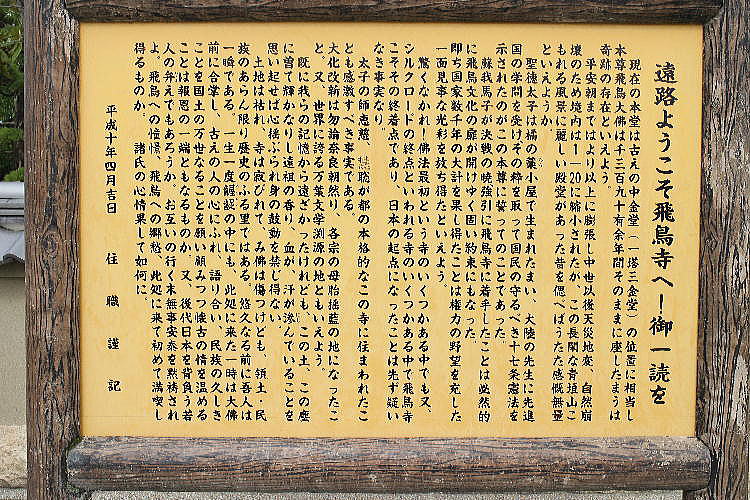 遠路ようこそ飛鳥寺へ！御一読を
現在の本堂は古えの中金堂（一塔三金堂）の位置に相当し
本尊飛鳥大佛は千三百九十有余年間そのままに座したまうは
奇跡の存在といえよう。
平安朝まではより以上に膨張し中世以後天災地変、自然崩
壊のため境内は1―20に縮小されたが、この長閑な青垣山こ
もれる風景に麗しい殿堂があった昔を偲べばうたた感慨無量
といえようか。
聖徳太子は橘の薬小屋で生まれたまい、大陸の先生に先進
国の学問を受けその粋を取って国民の守るべき十七条憲法を
示されたのがこの本尊に誓ってのことであった。
蘇我馬子が決戦の暁強引に飛鳥寺に着手したことは必然的
に飛鳥文化の扉が開けゆく固い約束にもなった
即ち国家数千年の大計を果し得たことは権力の野望を充した
一面見事な光彩を放ち得たといえよう。
驚くなかれ！佛法最初という寺のいくつかある中でも又、
シルクロードの終点といわれる寺のいくつかある中で飛鳥寺
こそその終着点であり、日本の起点になったことは先ず疑い
なき事実なり。
太子の師恵慈、慧聡が都の本格的なこの寺に住まわれたこ
とも感激すべき事実である。
大化改新は勿論奈良朝然り、各宗の母胎揺藍の地になったこ
と、又、世界に誇る万葉文学渕源の地ともいえよう。
既に我らの記憶から遠ざかったけれども、この土、この塵
に曽て輝かなりし遠祖の香り、血が、汗が滲んでいることを
思い起せば心揺ぶられ身の鼓動を禁じ得ない。
土地は枯れ、寺は寂びれて、み佛は傷つけども、領土・民
族のあらん限り歴史のふる里ではある。悠久なる前に吾人は
一瞬である。一生一度経験の中にも、此処に来た一時は大佛
前に合掌し、古えの人の心にふれ、語り合い、民族の久しき
ことを国土の万世なることを願い顧みつつ懐古の情を温める
ことは報恩の一端ともなるものか。又、後代日本を背負う若
人の弁えでもあろうか。お互いの行く末無事安泰を黙祷され
よ。飛鳥への憧憬、飛鳥への郷愁、此処に来て初めて満喫し
得るものか。諸氏の心情果して如何に
平成十年四月吉日　住職謹記